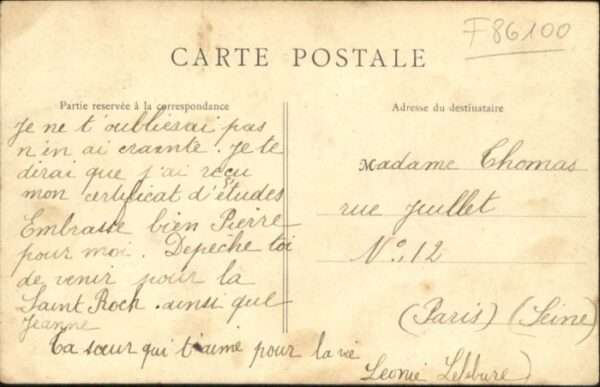 F86100
CARTE POSTALE
Partie reservée à la correspondance
Je ne t'oublierai pas
n'en ai crainte. Je te
dirai que j'ai reçu
mon certificat d'études
Embrasse bien Pierre
pour moi. Depêche toi
de venir pour la
Saint Roch. ainsi que
Jeanne
Ta sœur qui t'aime pour la vie
Leonie Lefebure
Adresse du destinataire
Madame Thomas
rue Juillet
No, 12
(Paris) (Seine)